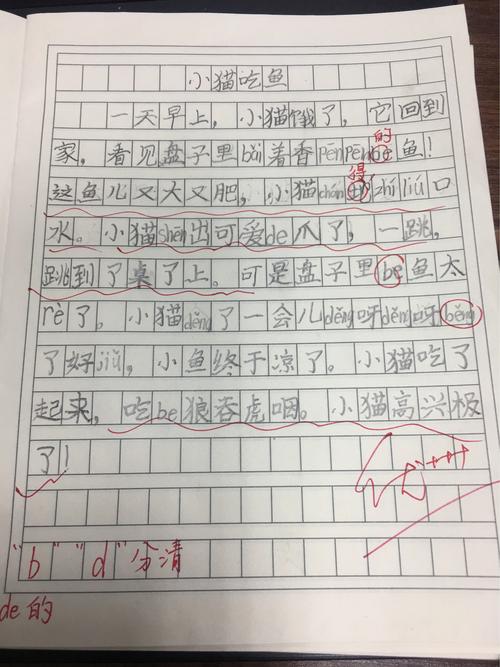 小猫吃鱼
一天早上，小猫饿了，它回到
的
家，看见盘子里bǎi着香pēnpēnbe鱼！
得
这鱼儿又大又肥，小猫chán zhí liú口
水。小猫shēn出可爱de爪了，一跳，
跳到了桌了上。可是盘子里be鱼太
rè了。小猫děng了一会儿děng呀děng呀běng
了好jiǔ，小鱼终于凉了。小猫吃了
起来，吃be狼吞虎咽。小猫高兴极
了！
优+++
"b" "d" 分清
de 的